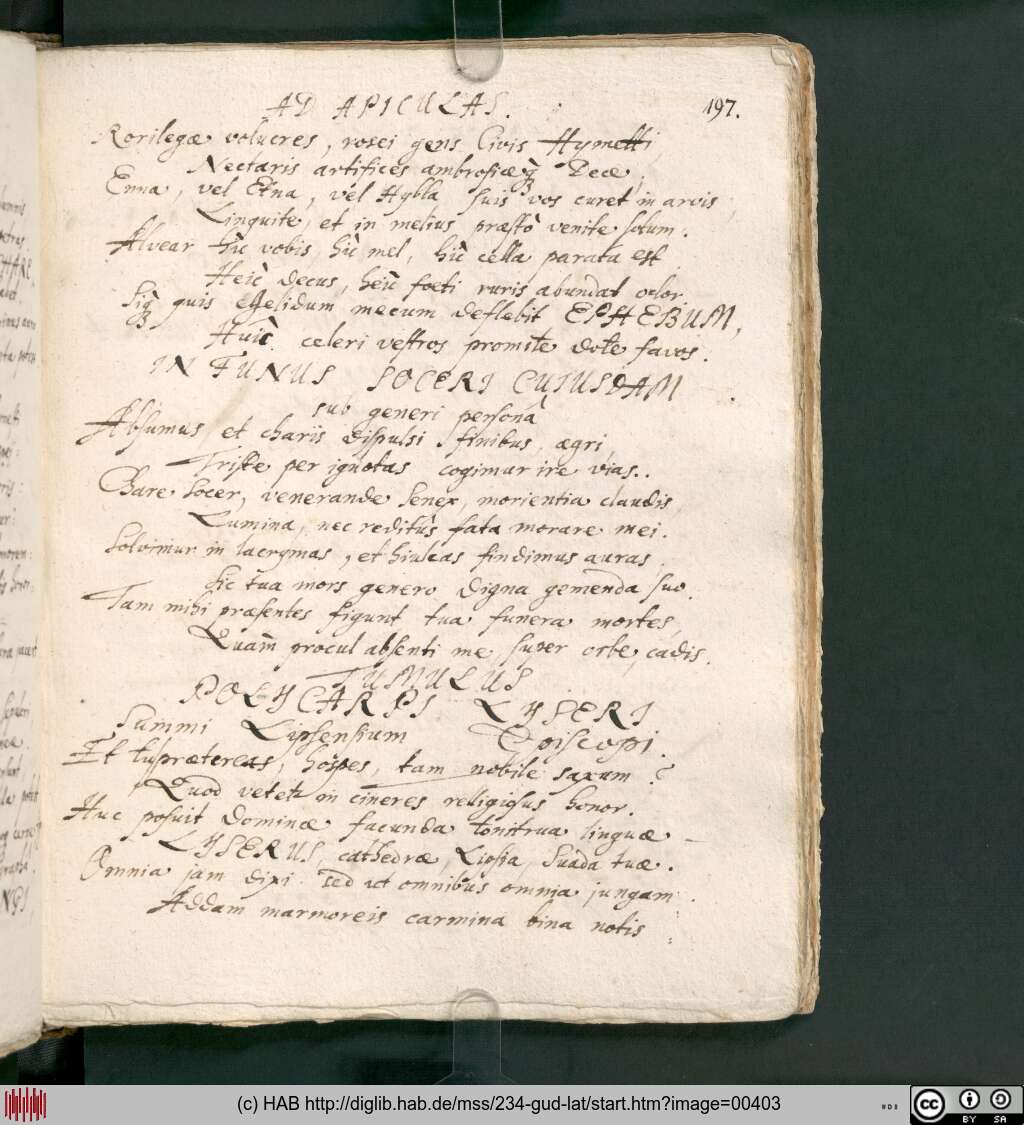 AD APICULAS.
197.
Rorilegæ volucres, rosei gens Civis Hymetti,
Nectaris artifices ambrosiæq̀ʒ Deæ,
Enna, vel Etna, vel Hybla suis vos curet in arvis,
Linquite, et in melius præstò venite solum.
Alvear hîc vobis, hîc mel, hîc cella parata est
Heic decus, heîc foeti ruris abundat odor.
Siq̀ʒ quis gelidum mecum deflebit EPHEBUM,
Huic celeri vestros promite dote favos.
IN FUNUS SOCERI CUIUSDAM
sub generi personâ
Absumus et charis dispulsi finibus, ægri,
Triste per ignotas cogimur ire vias.
Chare Socer, venerande Senex, morientia claudis
Lumina, nec reditûs fata morare mei.
Solvimur in lacrymas, et hiulcas findimus auras
Sic tua mors genero digna gemenda suo.
Tam mihi præsentes figunt tua funera mortes,
Quàm procul absenti me super orbe, cadis.
TUMULUS
POLYCARPI LYSERI
Summi Lipsensium Episcopi.
Et tu prætereas, hospes, tam nobile saxum?
Quod vetet in cineres relligiosus honor.
Huc posuit Dominæ facunda tonitrua linguæ
LYSERUS, cathedræ, Lipsia, Suada tuæ.
Omnia jam dixi. sed ut omnibus omnia jungam.
Addam marmoreis carmina bina notis:
(c) HAB http://diglib.hab.de/mss/234-gud-lat/start.htm?image=00403
cc BY SA